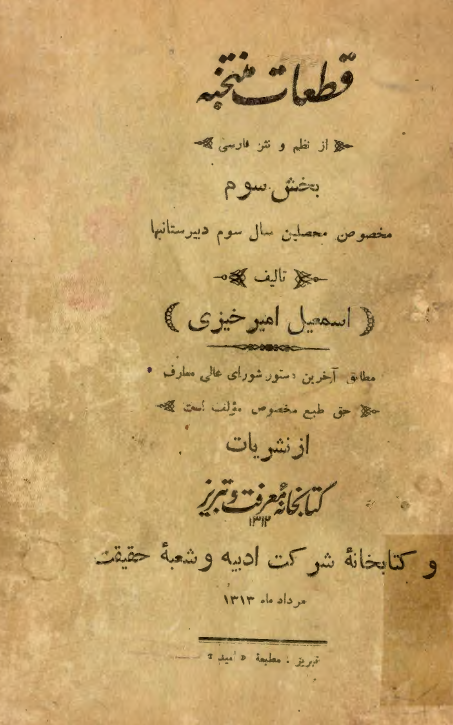 قطعات منتخبه
از نظم و نثر فارسی
بخش سوم
مخصوص محصلین سال سوم دبیرستانها
تالیف
( اسمعیل امیر خیزی )
مطابق آخرین دستور شورای عالی معارف
حق طبع مخصوص مؤلف است
از نشریات
کتابخانهٔ معرفت تبریز
۱۳۱۲
و کتابخانهٔ شرکت ادبیه و شعبهٔ حقیقت
مرداد ماه ۱۳۱۳
تبریز . مطبعهٔ « امید »